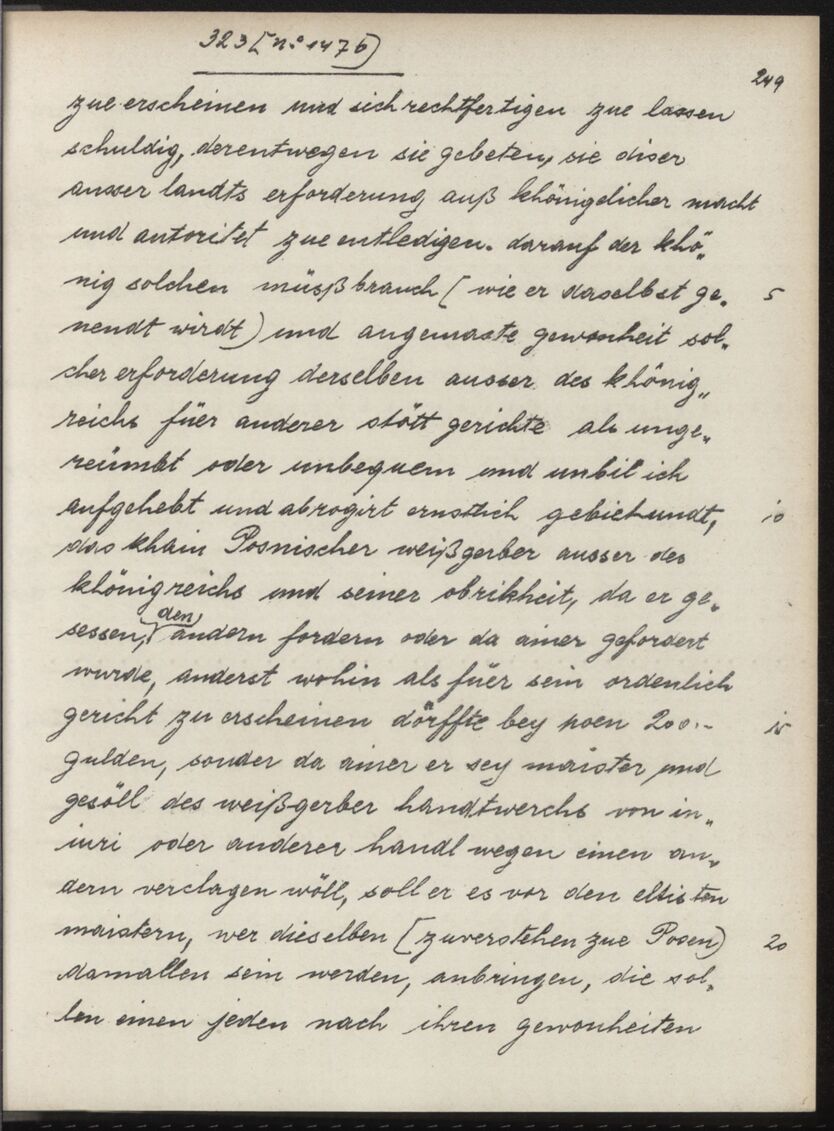 323 [n.° 1476]
249
zue erscheinen und sich rechtfertigen zue lassen
schuldig, derentwegen sie gebeten, sie diser
ausser landts erforderung auß khönigelicher macht
und autoritet zue entledigen. darauf der khö„
nig solchen müsßbrauch [wie er daselbst ge„ 5
nendt wirdt) und angemaste gewonheit sol„
cher erforderung derselben ausser des khönig„
reichs füer anderer stött gerichte als unge„
reümbt oder unbequem und unbil ich
aufgehebt und abrogirt ernstlich gebietundt, 10
das khain Posnischer weißgerber ausser des
khönigreichs und seiner obrikheit, da er ge„
sessen, den andern fordern oder da ainer gefordert
wurde, anderst wohin als füer sein ordenlich
gericht zu erscheinen dörffte bey poen 200.- 15
gulden, sonder da ainer er sey maister und
gesöll des weißgerber handtwerchs von in„
iuri oder anderer handl wegen einen an„
dern verclagen wöll, soll er es vor den eltisten
maistern, wer dieselben [zuverstehen zue Posen) 20
damallen sein werden, anbringen, die sol„
len einen jeden nach ihren gewonheiten